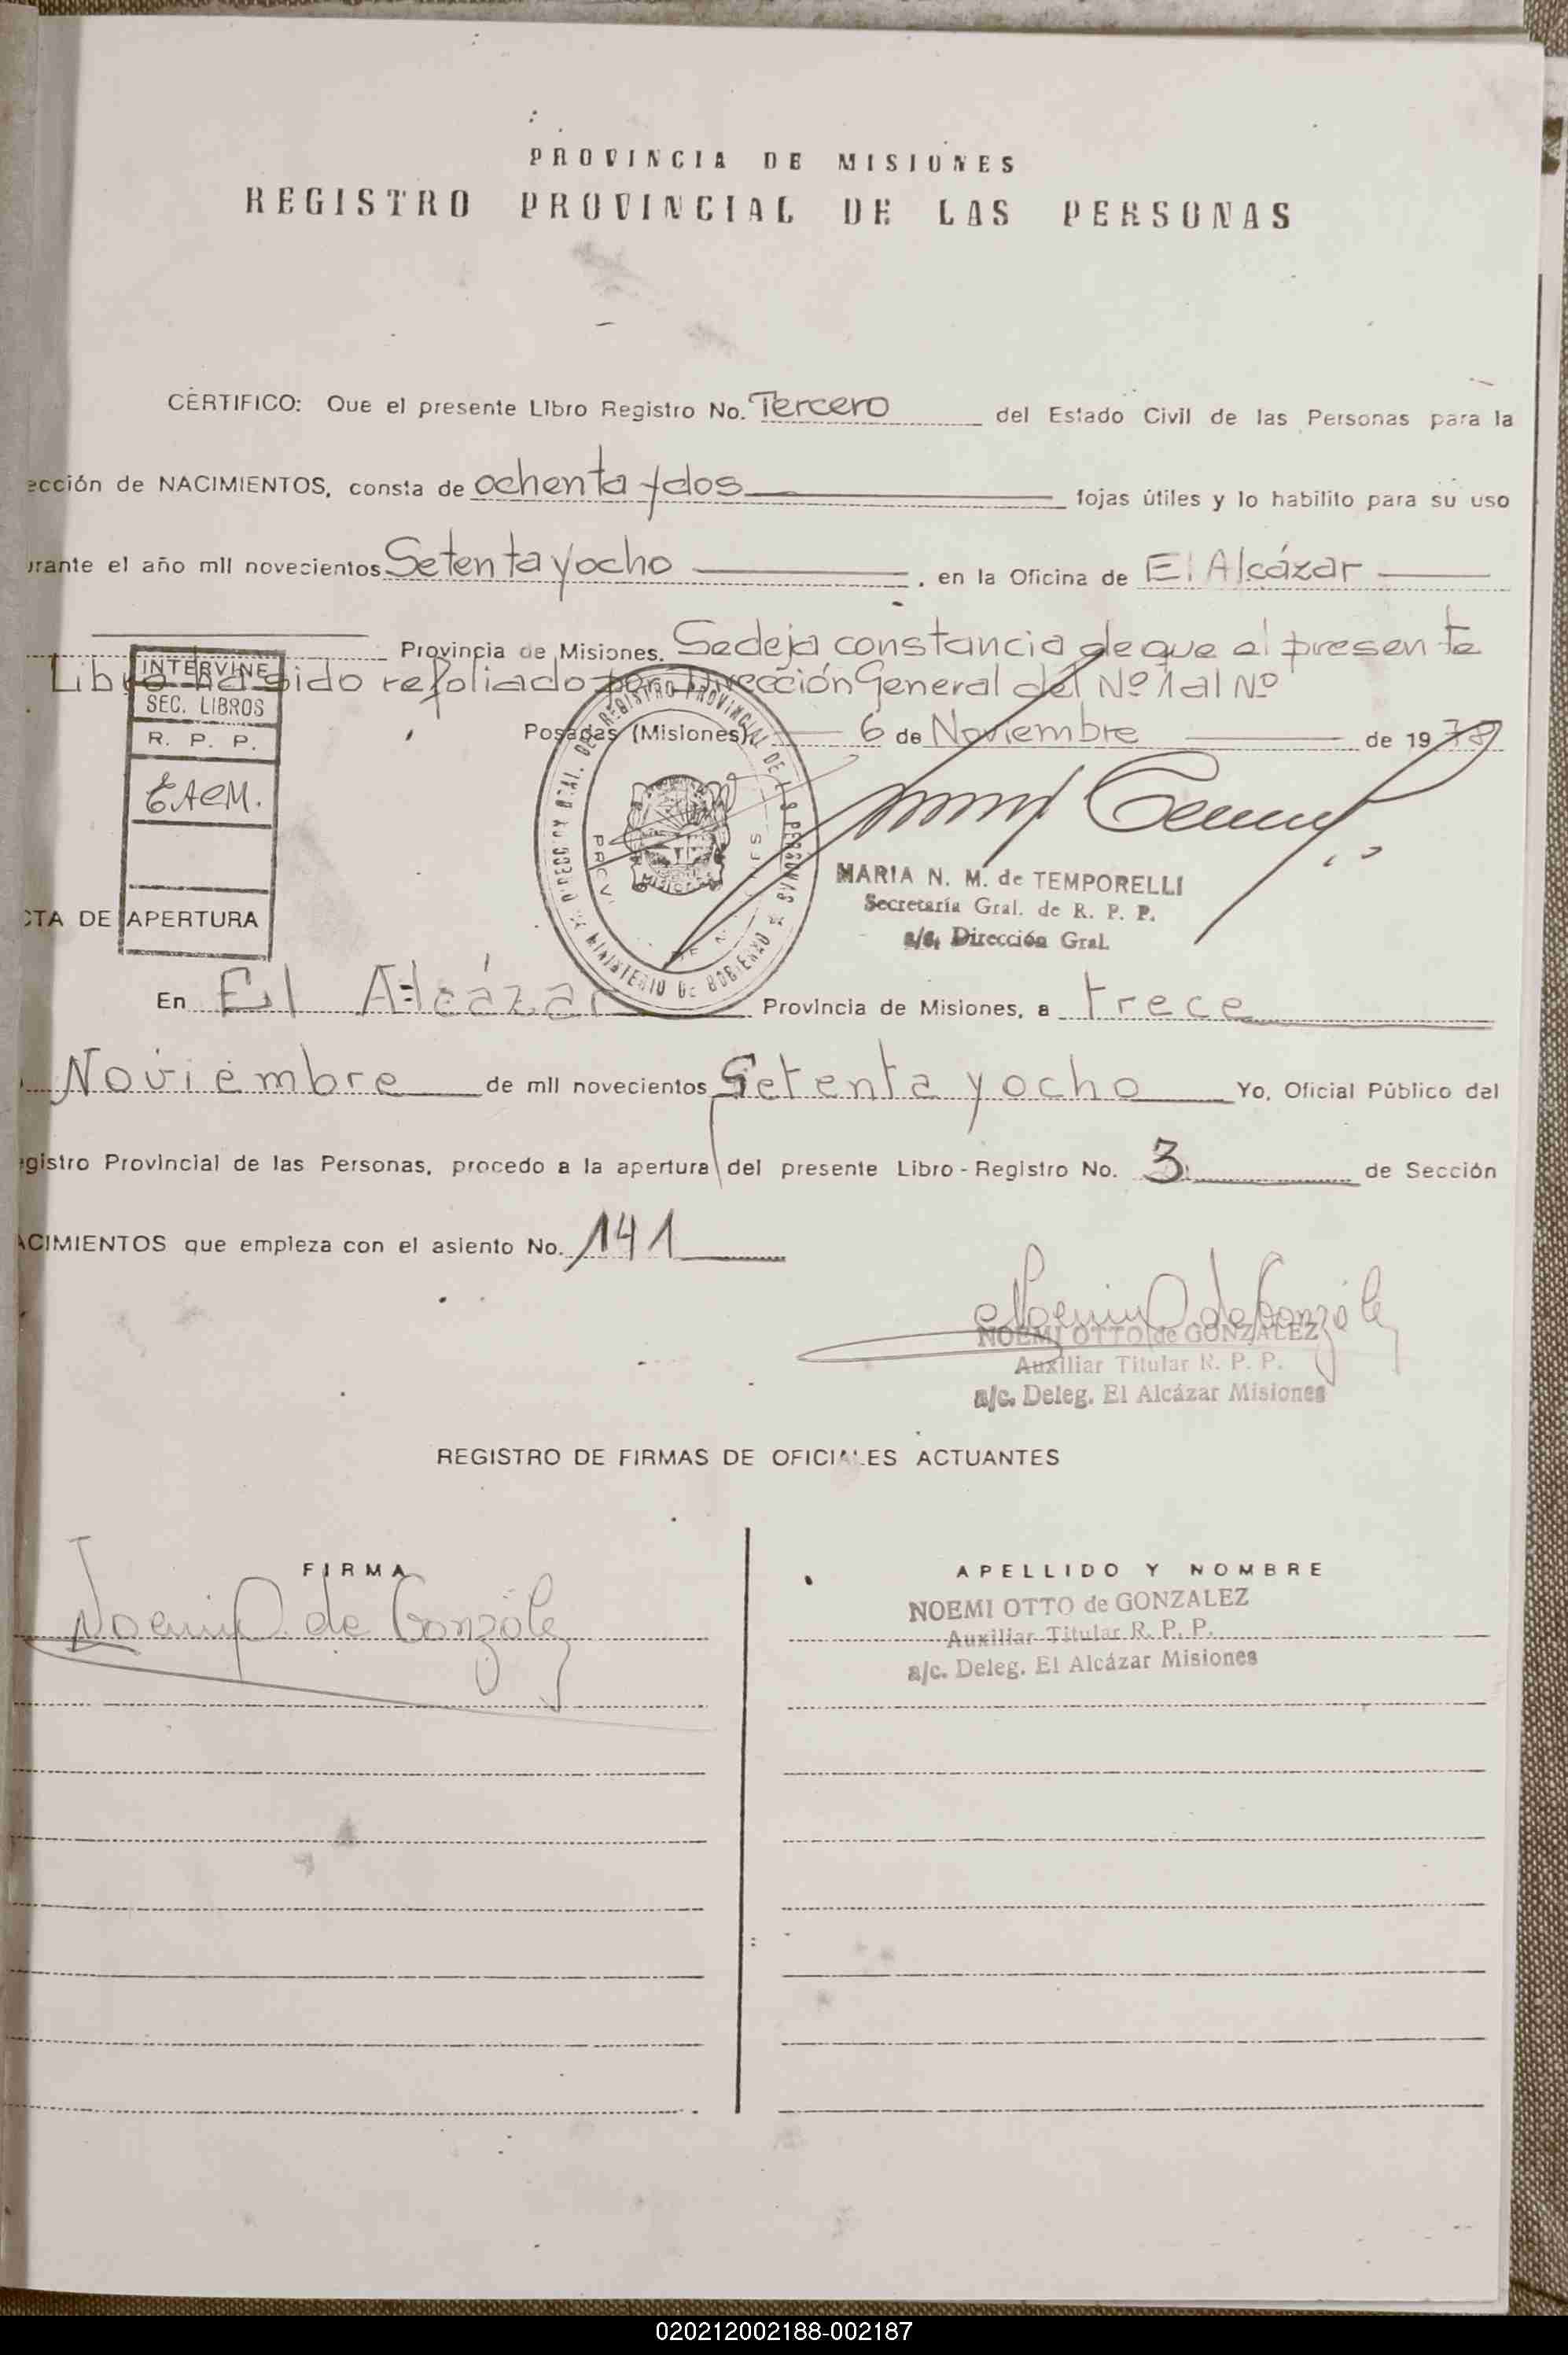 PROVINCIA DE MISIONES
REGISTRO PROVINCIAL DE LAS PERSONAS
CERTIFICO: Que el presente Libro Registro No. Tercero del Estado Civil de las Personas para la
ección de NACIMIENTOS, consta de ochenta y dos fojas útiles y lo habilito para su uso
urante el año mil novecientos Setenta y ocho , en la Oficina de El Alcázar
Provincia de Misiones. Se deja constancia de que el presente
Libro ha sido refoliado por Dirección General del Nº 1 al Nº
Posadas (Misiones), 6 de Noviembre de 1978
INTERVINE
SEC. LIBROS
R. P. P.
DIRECCION GRAL. DEL REGISTRO PROVINCIAL DE LAS PERSONAS
MINISTERIO DE GOBIERNO
MISIONES
MARIA N. M. de TEMPORELLI
Secretaría Gral. de R. P. P.
a/c. Dirección Gral.
CTA DE APERTURA
En El Alcázar Provincia de Misiones, a trece
Noviembre de mil novecientos Setenta y ocho Yo, Oficial Público del
egistro Provincial de las Personas, procedo a la apertura del presente Libro - Registro No. 3 de Sección
ACIMIENTOS que empieza con el asiento No. 141
Noemi O. de González
NOEMI OTTO de GONZALEZ
Auxiliar Titular R. P. P.
a/c. Deleg. El Alcázar Misiones
REGISTRO DE FIRMAS DE OFICIALES ACTUANTES
FIRMA APELLIDO Y NOMBRE
Noemi O. de González NOEMI OTTO de GONZALEZ
Auxiliar Titular R. P. P.
a/c. Deleg. El Alcázar Misiones
020212002188-002187